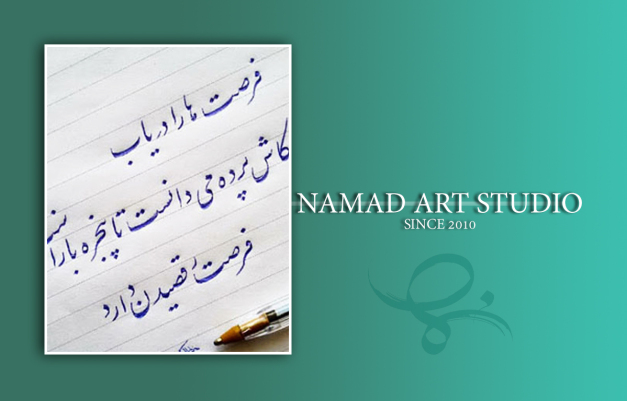 فرصت ها را دریاب
کاش پرده می دانست تا پنجره باز است
فرصت رقصیدن دارد
NAMAD ART STUDIO
SINCE 2010